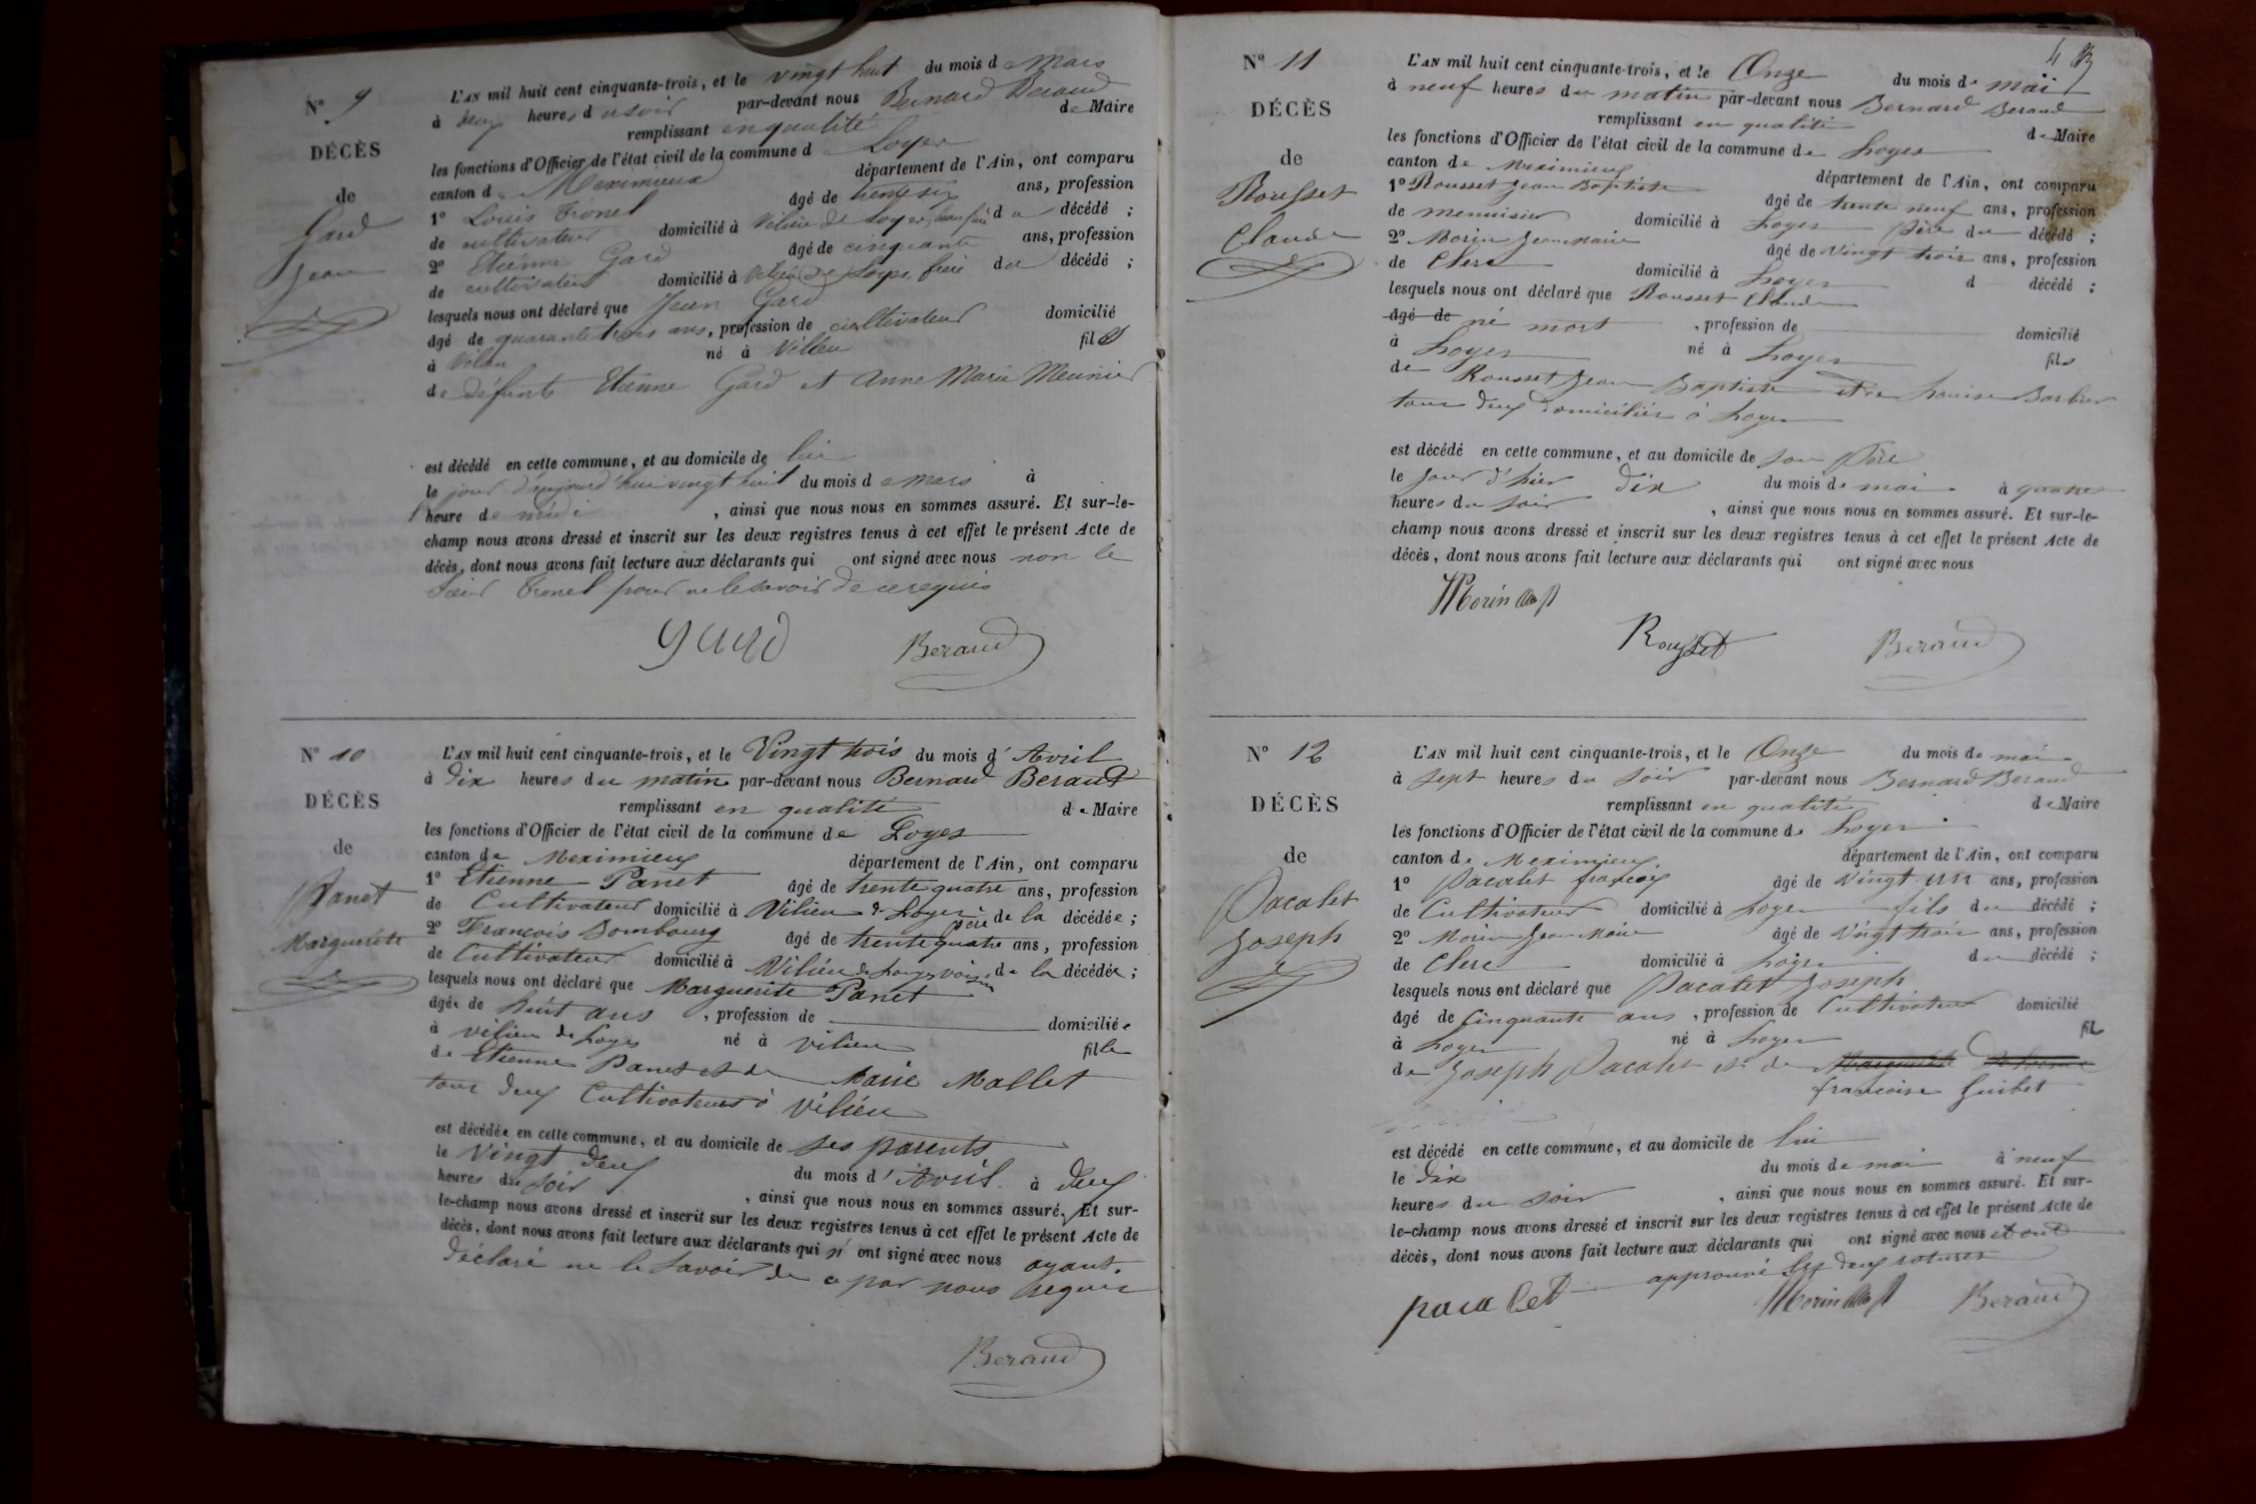 N° 9
DÉCÈS
de
Gard
Jean
L'AN mil huit cent cinquante-trois, et le vingt huit du mois de Mars
à deux heures du soir par-devant nous Bernard Beraud
remplissant en qualité de Maire
les fonctions d'Officier de l'état civil de la commune de Loyes
canton de Meximieux département de l'Ain, ont comparu
1° Louis Tronel âgé de trente six ans, profession
de cultivateur domicilié à Vilieu de Loyes, beau frère du décédé ;
2° Etienne Gard âgé de cinquante ans, profession
de cultivateur domicilié à Vilieu de Loyes, frère du décédé ;
lesquels nous ont déclaré que Jean Gard
âgé de quarante trois ans, profession de cultivateur domicilié
à Vilieu né à Villieu fils
de défunts Etienne Gard et Anne Marie Meunier
est décédé en cette commune, et au domicile de lui
le jour d'aujourd'hui vingt huit du mois de mars à
heure de midi, ainsi que nous nous en sommes assuré. Et sur-le-
champ nous avons dressé et inscrit sur les deux registres tenus à cet effet le présent Acte de
décès, dont nous avons fait lecture aux déclarants qui ont signé avec nous non le
Sieur Tronel pour ne le savoir de ce requis
gard Beraud
N° 10
DÉCÈS
de
Panet
Marguerite
L'AN mil huit cent cinquante-trois, et le Vingt trois du mois d'Avril
à dix heures du matin par-devant nous Bernard Beraud
remplissant en qualité de Maire
les fonctions d'Officier de l'état civil de la commune de Loyes
canton de Meximieux département de l'Ain, ont comparu
1° Etienne Panet âgé de trente quatre ans, profession
de Cultivateur domicilié à Vilieu de Loyes père de la décédée ;
2° François Dombourg âgé de trente quatre ans, profession
de Cultivateur domicilié à Viliéu de Loyes voisin de la décédée ;
lesquels nous ont déclaré que Marguerite Panet
âgée de huit ans, profession de domiciliée
à vilieu de Loyes né à vilieu fille
de Etienne Panet et de Marie Mallet
tous deux Cultivateurs à Viliéu
est décédée en cette commune, et au domicile de ses parents
le Vingt deux du mois d'Avril à deux
heures du soir, ainsi que nous nous en sommes assuré. Et sur-
le-champ nous avons dressé et inscrit sur les deux registres tenus à cet effet le présent Acte de
décès, dont nous avons fait lecture aux déclarants qui n'ont signé avec nous ayant
déclaré ne le savoir de ce par nous requis
Beraud
4
N° 11
DÉCÈS
de
Rousset
Claude
L'AN mil huit cent cinquante-trois, et le Onze du mois de mai
à neuf heures du matin par-devant nous Bernard Beraud
remplissant en qualité de Maire
les fonctions d'Officier de l'état civil de la commune de Loyes
canton de Meximieux département de l'Ain, ont comparu
1° Rousset Jean Baptiste âgé de trente neuf ans, profession
de menuisier domicilié à Loyes père du décédé ;
2° Morin Jean Marie âgé de Vingt trois ans, profession
de Clerc domicilié à Loyes d décédé ;
lesquels nous ont déclaré que Rousset Claude
âgé de né mort, profession de domicilié
à Loyes né à Loyes fils
de Rousset Jean Baptiste et de Louise Barbier
tous deux domiciliés à Loyes
est décédé en cette commune, et au domicile de son Père
le jour d'hier dix du mois de mai à quatre
heures du soir, ainsi que nous nous en sommes assuré. Et sur-le-
champ nous avons dressé et inscrit sur les deux registres tenus à cet effet le présent Acte de
décès, dont nous avons fait lecture aux déclarants qui ont signé avec nous
Morin
Rousset Beraud
N° 12
DÉCÈS
de
Pacalet
Joseph
L'AN mil huit cent cinquante-trois, et le Onze du mois de mai
à sept heures du soir par-devant nous Bernard Beraud
remplissant en qualité de Maire
les fonctions d'Officier de l'état civil de la commune de Loyes
canton de Meximieux département de l'Ain, ont comparu
1° Pacalet françois âgé de Vingt un ans, profession
de Cultivateur domicilié à Loyes fils du décédé ;
2° Morin Jean Marie âgé de Vingt trois ans, profession
de Clerc domicilié à Loyes du décédé ;
lesquels nous ont déclaré que Pacalet Joseph
âgé de Cinquante ans, profession de Cultivateur domicilié
à Loyes né à Loyes fils
de Joseph Pacalet et de Marguerite
francoise Guibet
est décédé en cette commune, et au domicile de lui
le dix du mois de mai à neuf
heures du soir, ainsi que nous nous en sommes assuré. Et sur-
le-champ nous avons dressé et inscrit sur les deux registres tenus à cet effet le présent Acte de
décès, dont nous avons fait lecture aux déclarants qui ont signé avec nous et ont
approuvé les deux ratures
pacalet Morin Beraud